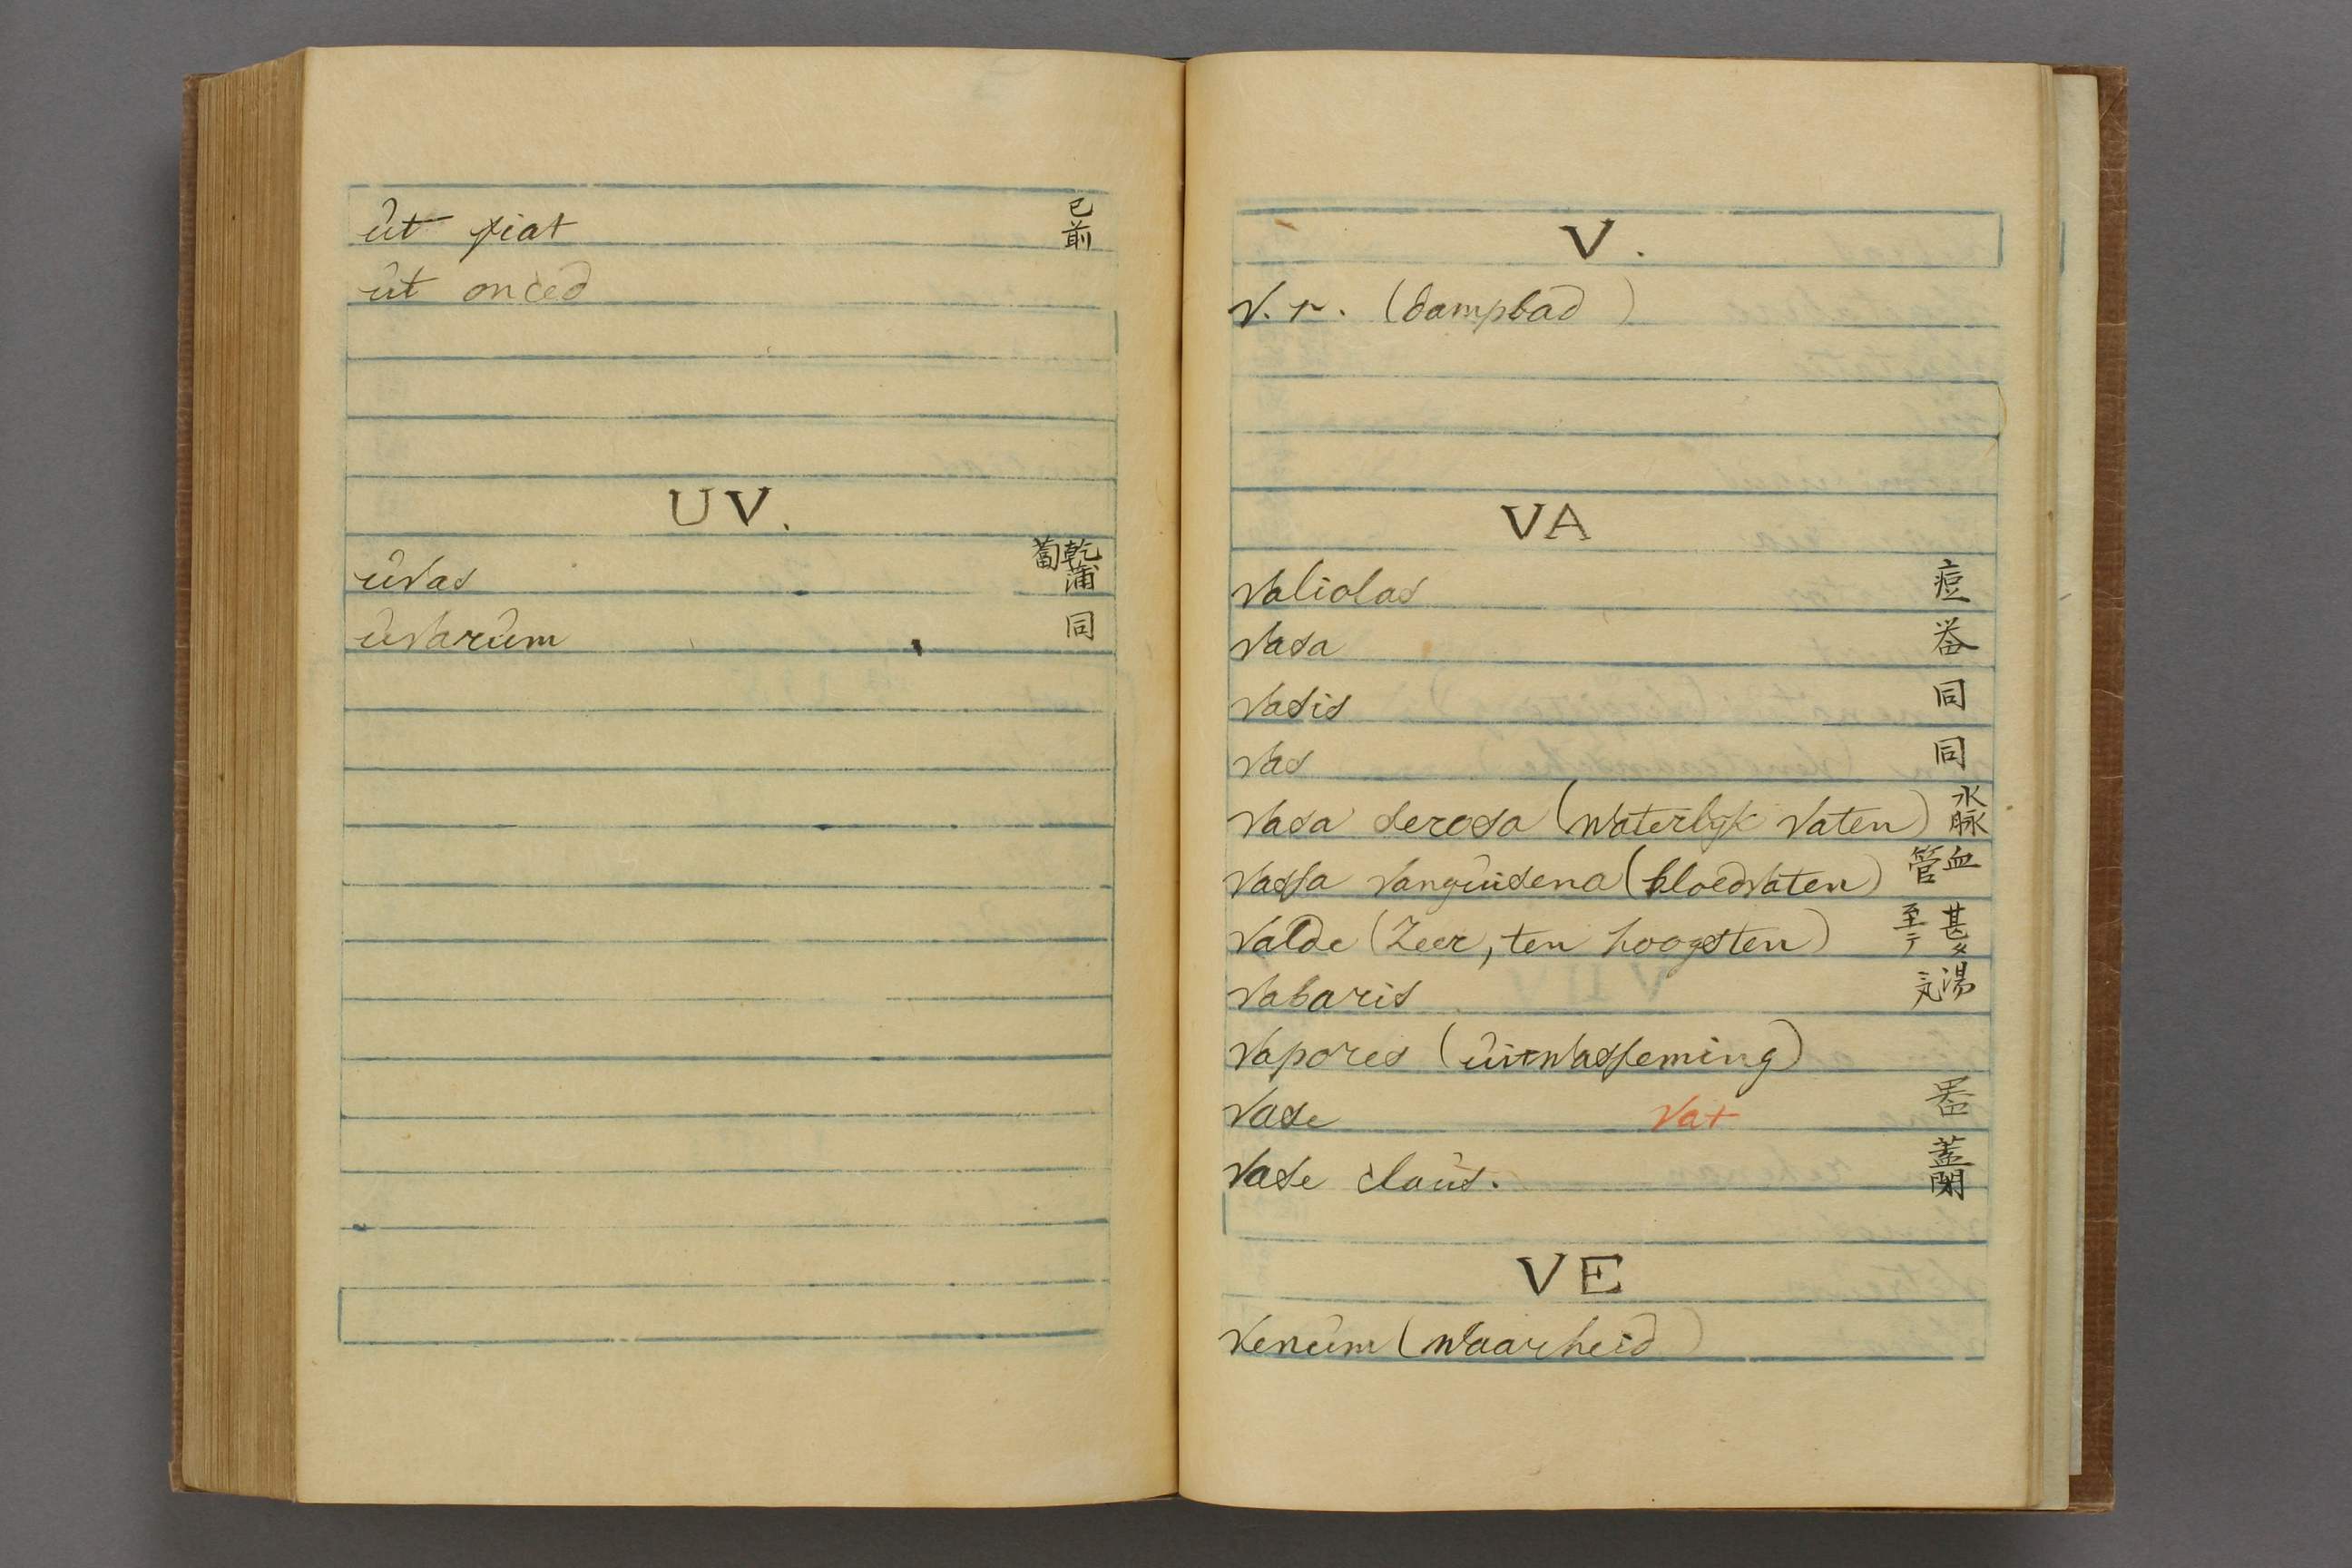 ût fiat 已前
ût onced
UV.
ûvas 乾蒲萄
ûvarûm 同
V.
V. r. (dampbad)
VA
Valiolas 痘
Vasa
Vasis 同
Vas 同
Vasa serosa (Waterlyk Vaten) 水脈
Vassa Vangûisena (bloedvaten) 血管
Valde (Zeer, ten hoogsten) 甚タ至テ
Vabaris 湯気
Vapores (ûitwasseming)
Vase Vat 器
Vase claûs. 蓋閉
VE
Venûm (Waarheid)